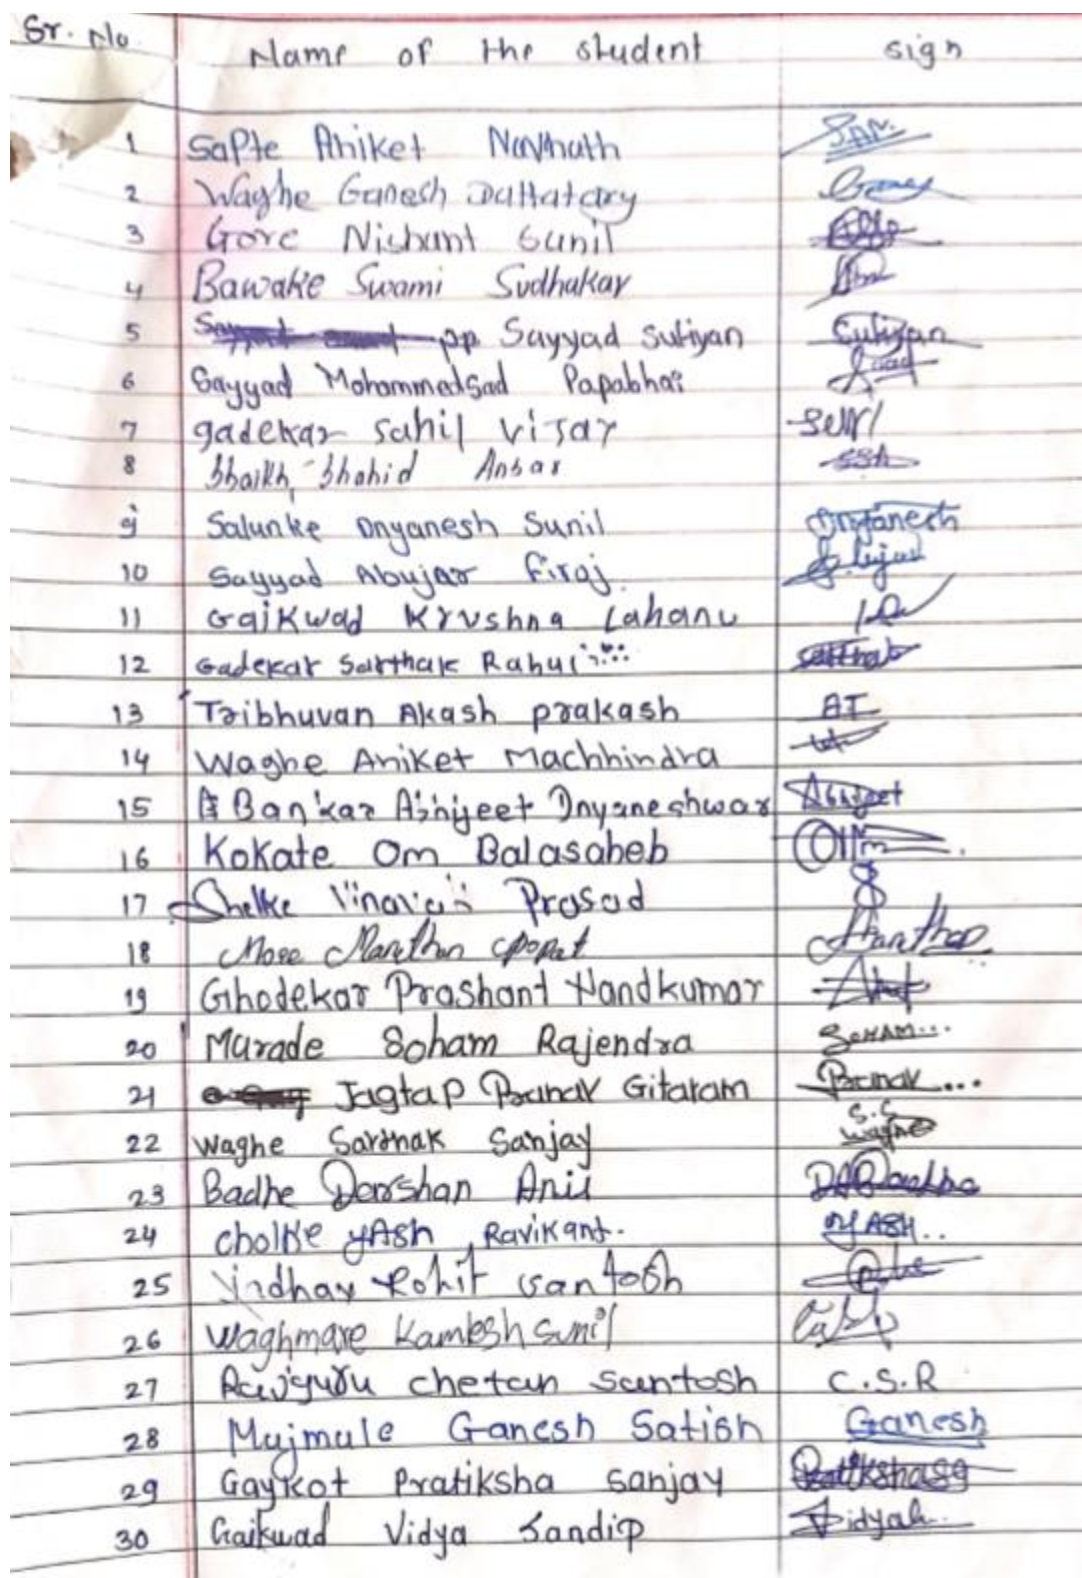 Sr. No Name of the student sign
1 Sapte Aniket Navnath S.A.N.
2 Waghe Ganesh Dattatary
3 Gore Nishant Sunil
4 Bawake Swami Sudhakar
5 pp. Sayyad Sufiyan Sufiyan
6 Sayyad Mohammedsad Papabhai
7 gadekar sahil vijay
8 Shaikh Shahid Ansar
9 Salunke Dnyanesh Sunil Dnyanesh
10 Sayyad Abujar firoj
11 Gaikwad Krushna Lahanu
12 Gadekar Sarthak Rahul Sarthak
13 Tribhuvan Akash prakash AT
14 Waghe Aniket Machhindra
15 Bankar Abhijeet Dnyaneshwar Abhijeet
16 Kokate Om Balasaheb
17 Shelke Prasad
18 More Popat
19 Ghodekar Prashant Nandkumar
20 Murade Soham Rajendra SOHAM...
21 Jagtap Pranav Gitaram Pranav...
22 Waghe Sarthak Sanjay S.S waghe
23 Badhe Darshan Anil
24 cholke yAsh Ravikant. YASH..
25 Rohit santosh
26 Waghmare Kamlesh Sunil
27 Rajguru chetan santosh C.S.R
28 Mujmule Ganesh Satish Ganesh
29 Gaykot Pratiksha sanjay
30 Gaikwad Vidya Sandip Vidya